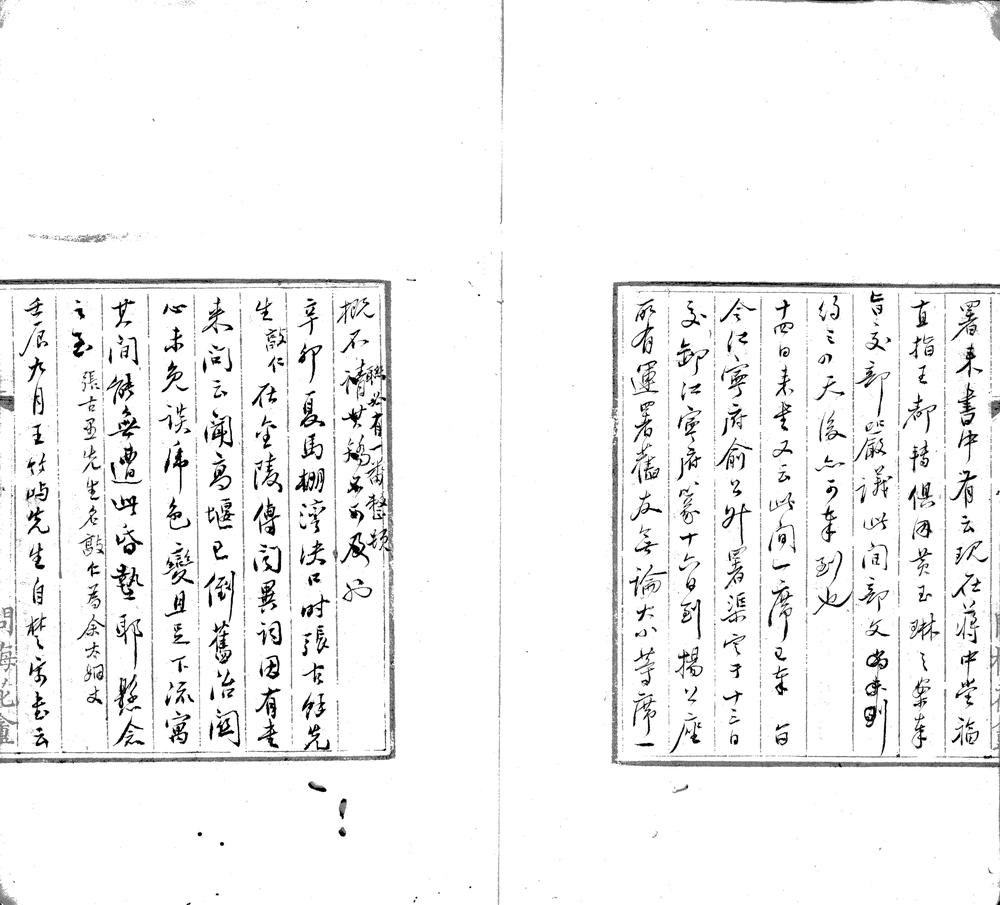 署来書中有云現在蔣中堂福
直指王都轉俱因黃玉琳之案奉
旨交部嚴議此間部文尚未到
約三四天後亦可奉到也
十四日来書又云此間一席已奉 旨
令江寧府俞公升署渠定于十三日
交卸江寧府篆十六日到揚公座
所有運署舊友無論大小等席一
概不請其矯
聯必有一番整頓
辛卯夏馬棚灣決口時張古餘先
生敦仁在金陵傳聞異詞因有書
来問云聞高堰已倒舊治闗
心未免談虎色變且足下流寓
其間能無遭此昏墊耶 懸念
之至 張古愚先生名敦仁為余太姻丈
壬辰九月王竹嶼先生自楚寄書云
問梅花盦